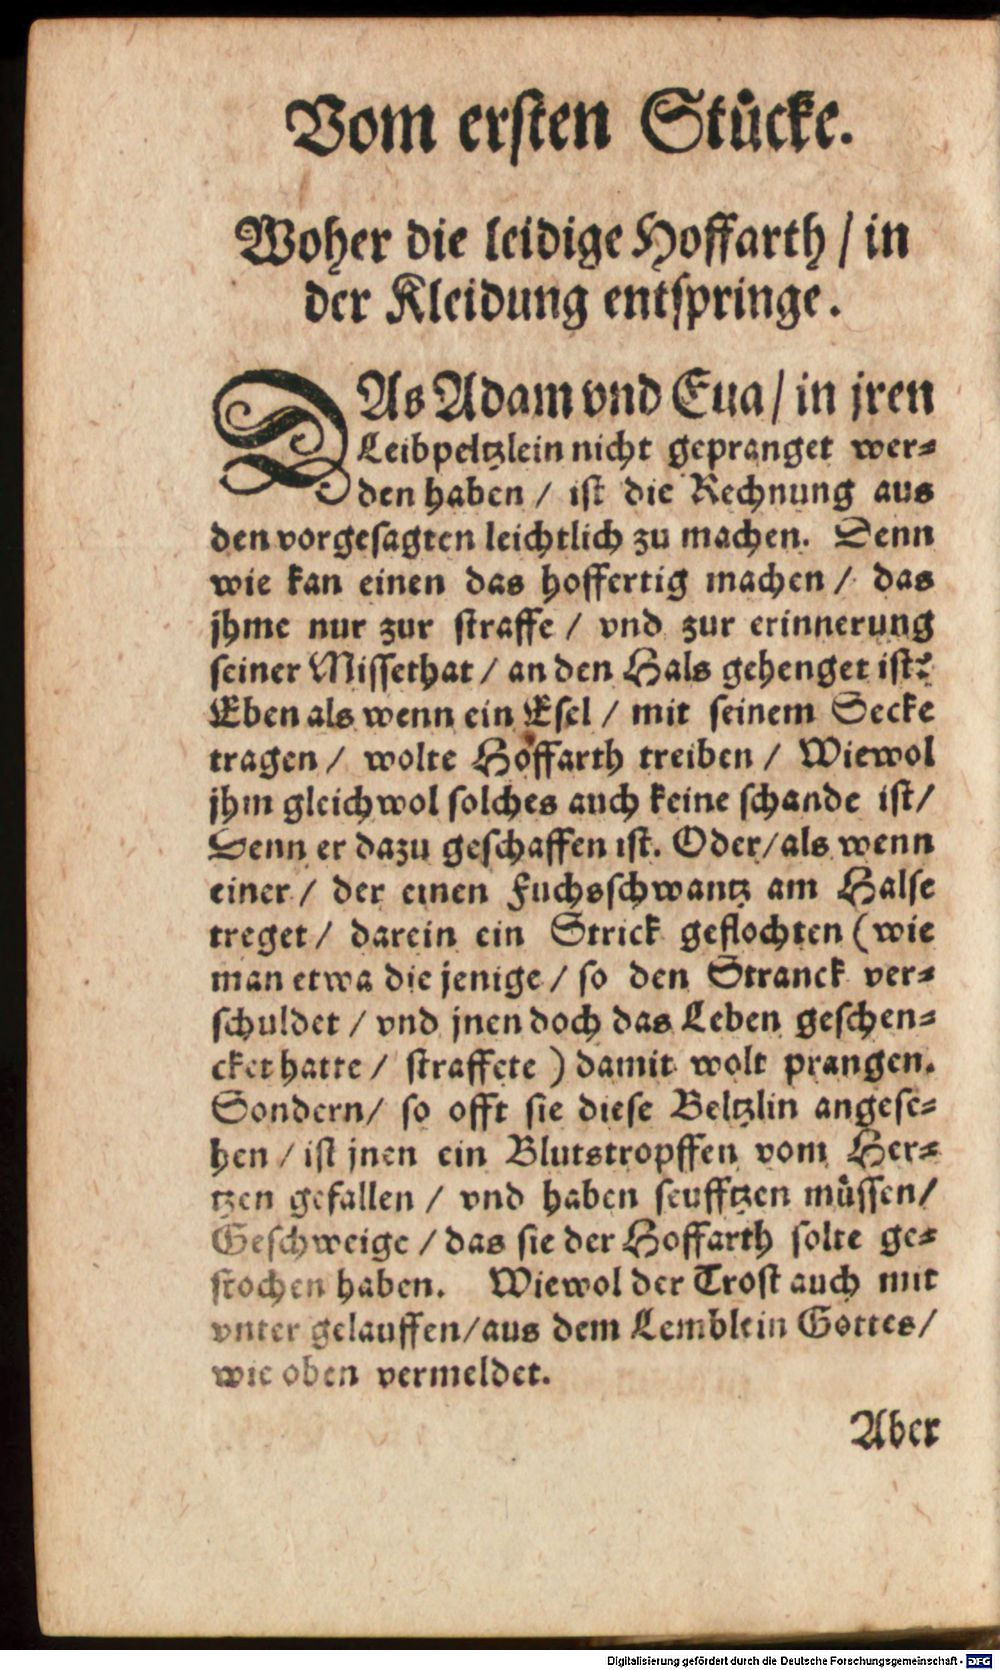 Vom ersten Stücke.
Woher die leidige Hoffarth / in
der Kleidung entspringe.
DAs Adam vnd Eua / in jren
Leibpeltzlein nicht gepranget wer-
den haben / ist die Rechnung aus
den vorgesagten leichtlich zu machen. Denn
wie kan einen das hoffertig machen / das
jhme nur zur straffe / vnd zur erinnerung
seiner Missethat / an den Hals gehenget ist?
Eben als wenn ein Esel / mit seinem Secke
tragen / wolte Hoffarth treiben / Wiewol
jhm gleichwol solches auch keine schande ist /
Denn er dazu geschaffen ist. Oder / als wenn
einer / der einen Fuchsschwantz am Halse
treget / darein ein Strick geflochten (wie
man etwa die jenige / so den Stranck ver-
schuldet / vnd jnen doch das Leben geschen-
cket hatte / straffete ) damit wolt prangen.
Sondern / so offt sie diese Beltzlin angese-
hen / ist jnen ein Blutstropffen vom Her-
tzen gefallen / vnd haben seufftzen müssen /
Geschweige / das sie der Hoffarth solte ge-
stochen haben. Wiewol der Trost auch mit
vnter gelauffen / aus dem Lemblein Gottes /
wie oben vermeldet.
Aber
Digitalisierung gefördert durch die Deutsche Forschungsgemeinschaft - DFG